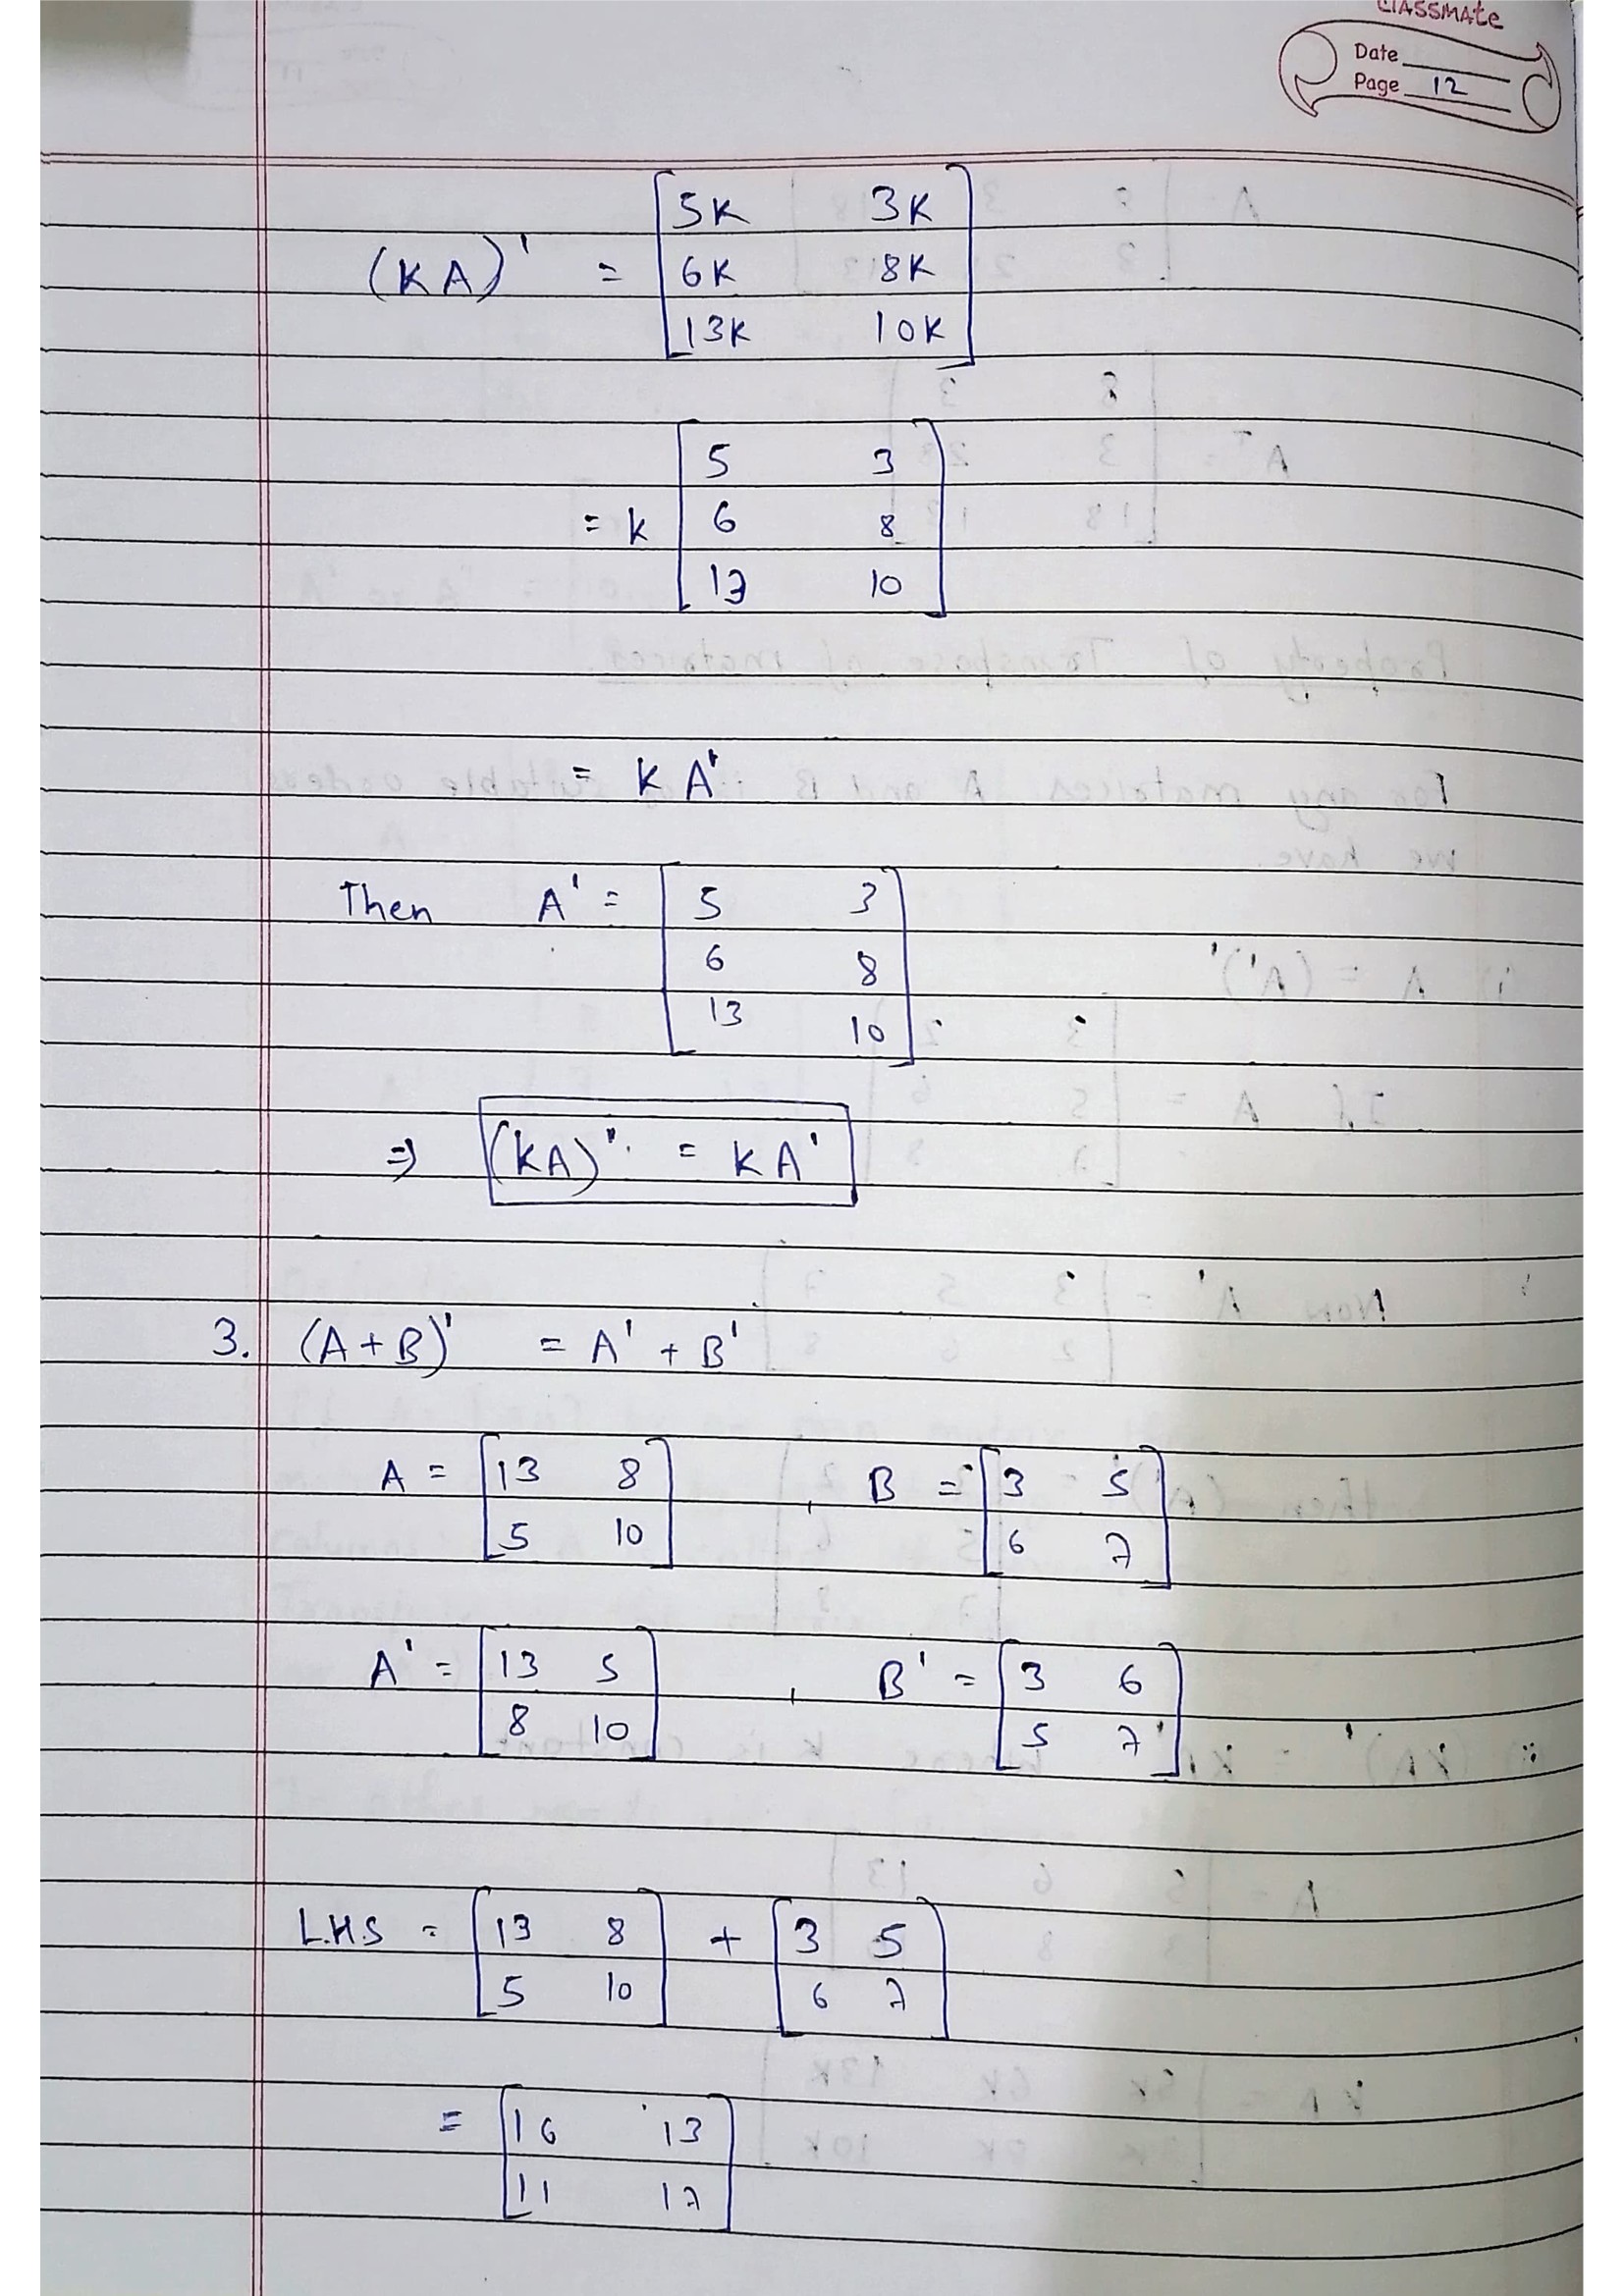 classmate
Date
Page 12
5K 3K
(KA)' = 6K 8K
13K 10K
5 3
= k 6 8
13 10
= KA'
Then A' = 5 3
6 8
13 10
⇒ (KA)' = KA'
3. (A+B)' = A' + B'
A = 13 8 , B = 3 5
5 10 6 7
A' = 13 5 , B' = 3 6
8 10 5 7
L.H.S = 13 8 + 3 5
5 10 6 7
= 16 13
11 17